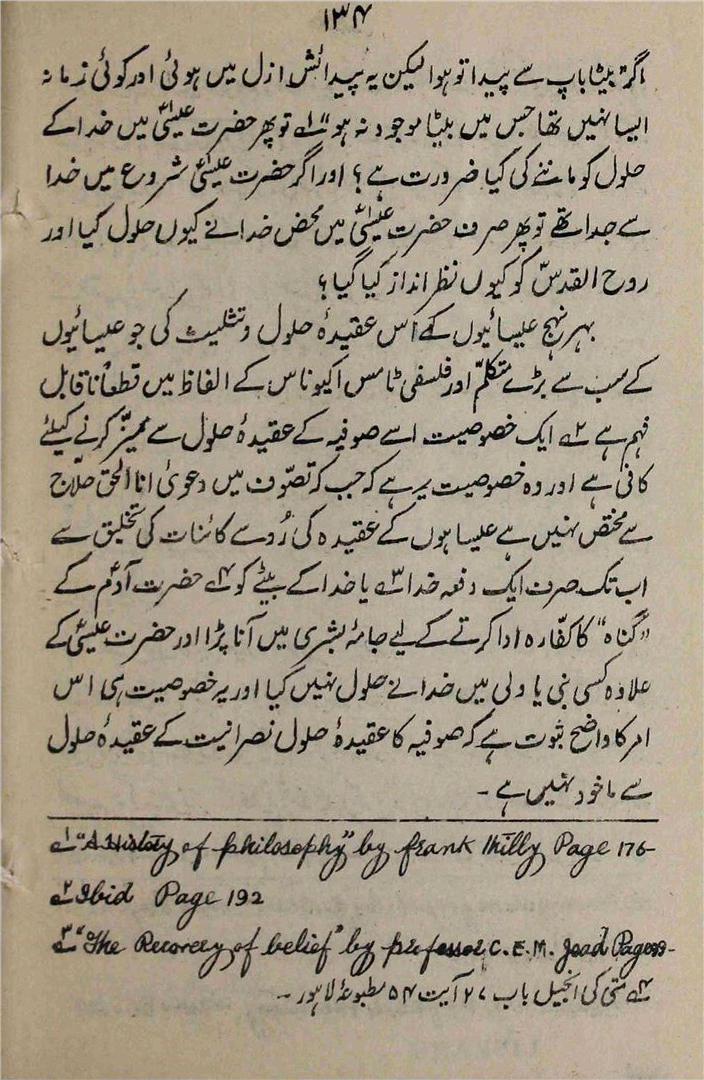 ۱۳۴
اگر بیٹا باپ سے پیدا تو ہوا لیکن یہ پیدائش ازل میں ہوئی اور کوئی زمانہ
ایسا نہیں تھا جس میں بیٹا موجود نہ ہو"۱ تو پھر حضرت عیسیٰؑ میں خدا کے
حلول کو ماننے کی کیا ضرورت ہے؟ اور اگر حضرت عیسیٰؑ شروع میں خدا
سے جدا تھے تو پھر صرف حضرت عیسیٰؑ میں محض خدا نے کیوں حلول کیا اور
روح القدس کو کیوں نظر انداز کیا گیا؟
بہر نہج عیسائیوں کے اس عقیدۂ حلول و تثلیث کی جو عیسائیوں
کے سب سے بڑے متکلّم اور فلسفی ٹامس اکیوناس کے الفاظ میں قطعاً ناقابل
فہم ہے۲ ایک خصوصیت اسے صوفیہ کے عقیدۂ حلول سے ممیّز کرنے کیلئے
کافی ہے اور وہ خصوصیت یہ ہے کہ جب کہ تصوّف میں دعویٰ انا الحق حلّاج
سے مختص نہیں ہے عیساہوں کے عقیدہ کی رُو سے کائنات کی تخلیق سے
اب تک صرف ایک دفعہ خدا۳ یا خدا کے بیٹے کو۴ حضرت آدمؑ کے
"گناہ" کا کفّارہ ادا کرنے کے لیے جامۂ بشری میں آنا پڑا اور حضرت عیسیٰؑ کے
علاوہ کسی نبی یا ولی میں خدا نے حلول نہیں کیا اور یہ خصوصیت ہی اس
امر کا واضح ثبوت ہے کہ صوفیہ کا عقیدۂ حلول نصرانیت کے عقیدہ حلول
سے ماخوذ نہیں ہے ۔
۱ "A History of philosophy" by frank thilly Page 176
۲ Ibid Page 192
۳ "The Recovery of belief" by professor C.E.M. Joad Page
۴ متی کی انجیل باب ۲۷ آیت ۵۴ مطبوعۂ لاہور ۔